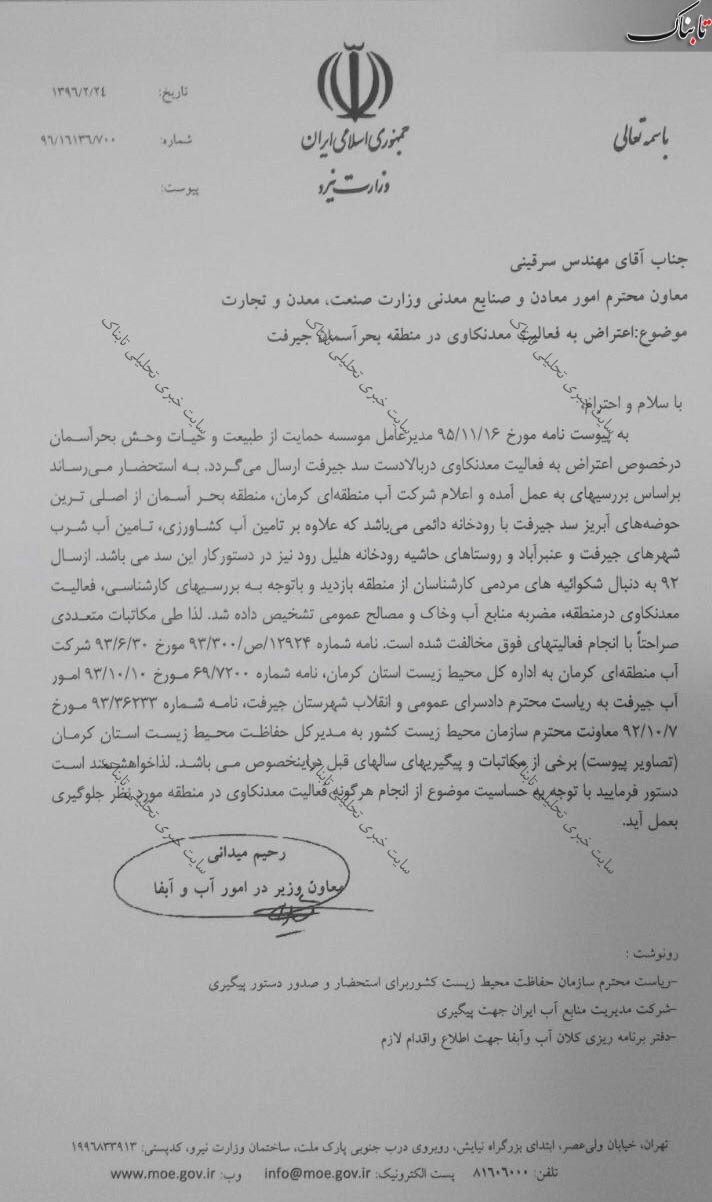 تابناک
باسمه تعالی
جمهوری اسلامی ایران
وزارت نیرو
تاریخ: ۱۳۹۶/۲/۲۴
شماره: ۹۶/۱۶۱۳۶/۷۰۰
پیوست:
جناب آقای مهندس سرقینی
معاون محترم امور معادن و صنایع معدنی وزارت صنعت، معدن و تجارت
موضوع:اعتراض به فعالیت معدنکاوی در منطقه بحرآسمان جیرفت
با سلام و احترام
به پیوست نامه مورخ ۹۵/۱۱/۱۶ مدیرعامل موسسه حمایت از طبیعت و حیات وحش بحرآسمان
درخصوص اعتراض به فعالیت معدنکاوی دربالادست سد جیرفت ارسال می‌گردد. به استحضار می‌رساند
براساس بررسیهای به عمل آمده و اعلام شرکت آب منطقه‌ای کرمان، منطقه بحر آسمان از اصلی ترین
حوضه‌های آبریز سد جیرفت با رودخانه دائمی می‌باشد که علاوه بر تامین آب کشاورزی، تامین آب شرب
شهرهای جیرفت و عنبرآباد و روستاهای حاشیه رودخانه هلیل رود نیز در دستورکار این سد می باشد. ازسال
۹۲ به دنبال شکوائیه های مردمی کارشناسان از منطقه بازدید و باتوجه به بررسیهای کارشناسی، فعالیت
معدنکاوی درمنطقه، مضربه منابع آب وخاک و مصالح عمومی تشخیص داده شد. لذا طی مکاتبات متعددی
صراحتاً با انجام فعالیتهای فوق مخالفت شده است. نامه شماره ۱۲۹۲۴/ص/۹۳/۳۰۰ مورخ ۹۳/۶/۳۰ شرکت
آب منطقه‌ای کرمان به اداره کل محیط زیست استان کرمان، نامه شماره ۶۹/۷۲۰۰ مورخ ۹۳/۱۰/۱۰ امور
آب جیرفت به ریاست محترم دادسرای عمومی و انقلاب شهرستان جیرفت، نامه شماره ۹۳/۳۶۲۳۳ مورخ
۹۲/۱۰/۷ معاونت محترم سازمان محیط زیست کشور به مدیرکل حفاظت محیط زیست استان کرمان
(تصاویر پیوست) برخی از مکاتبات و پیگیریهای سالهای قبل دراینخصوص می باشد. لذاخواهشمند است
دستور فرمایید با توجه به حساسیت موضوع از انجام هرگونه فعالیت معدنکاوی در منطقه مورد نظر جلوگیری
بعمل آید.
رحیم میدانی
معاون وزیر در امور آب و آبفا
رونوشت :
-ریاست محترم سازمان حفاظت محیط زیست کشوربرای استحضار و صدور دستور پیگیری
-شرکت مدیریت منابع آب ایران جهت پیگیری
-دفتر برنامه ریزی کلان آب وآبفا جهت اطلاع واقدام لازم
تهران، خیابان ولی‌عصر، ابتدای بزرگراه نیایش، روبروی درب جنوبی پارک ملت، ساختمان وزارت نیرو، کدپستی: ۱۹۹۶۸۳۳۹۱۳
تلفن: ۸۱۶۰۶۰۰۰ پست الکترونیک: info@moe.gov.ir وب: www.moe.gov.ir
سایت خبری تحلیلی تابناک
سایت خبری تحلیلی تابناک
سایت خبری تحلیلی تابناک
سایت خبری تحلیلی تابناک
سایت خبری تحلیلی تابناک
سایت خبری تحلیلی تابناک